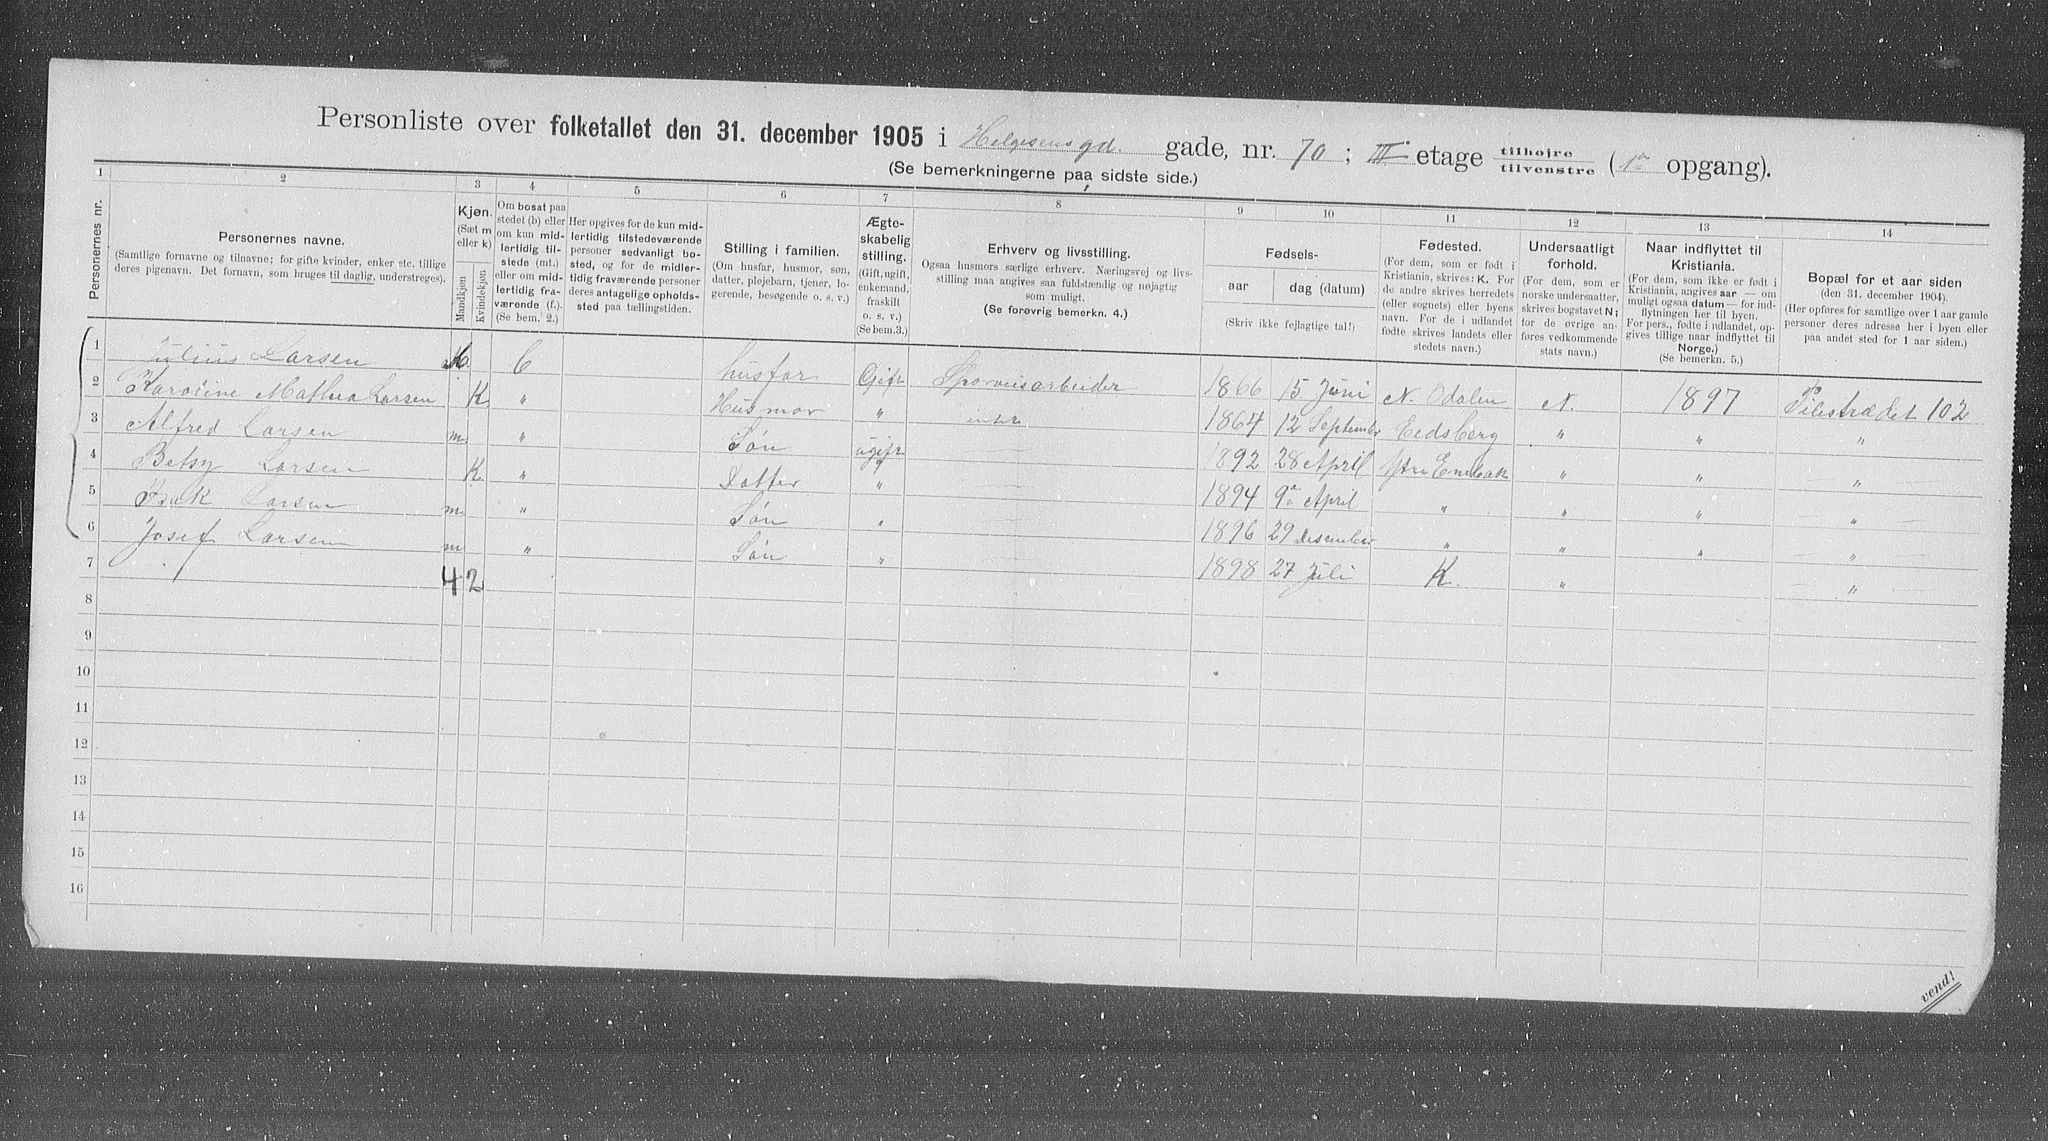 Personliste over folketallet den 31. december 1905 i Helgesens gd. gade, nr. 70 ; III etage tilhøjre / tilvenstre ( 1ste opgang).
(Se bemerkningerne paa sidste side.)
1 2 3 4 5 6 7 8 9 10 11 12 13 14
Personernes nr.
Personernes navne.
(Samtlige fornavne og tilnavne; for gifte kvinder, enker etc. tillige
deres pigenavn. Det fornavn, som bruges til daglig, understreges).
Kjøn.
(Sæt m
eller k)
Mandkjøn
Kvindekjøn
Om bosat paa
stedet (b) eller
om kun mid-
lertidig til-
stede (mt.)
eller om mid-
lertidig fra-
værende (f.).
(Se bem. 2.)
Her opgives for de kun mid-
lertidig tilstedeværende
personer sedvanligt bo-
sted, og for de midler-
tidig fraværende personer
deres antagelige opholds-
sted paa tællingstiden.
Stilling i familien.
(Om husfar, husmor, søn,
datter, plejebarn, tjener, lo-
gerende, besøgende o. s. v.)
Ægte-
skabelig
stilling.
(Gift, ugift,
enkemand,
fraskilt
o. s. v.)
(Se bem.3.)
Erhverv og livsstilling.
Ogsaa husmors særlige erhverv. Næringsvej og livs-
stilling maa angives saa fuldstændig og nøjagtig
som muligt.
(Se forøvrig bemerkn. 4.)
Fødsels-
aar
dag (datum)
(Skriv ikke fejlagtige tal!)
Fødested.
(For dem, som er født i
Kristiania, skrives: K. For
de andre skrives herredets
(eller sognets) eller byens
navn. For de i udlandet
fødte skrives landets eller
stedets navn.)
Undersaatligt
forhold.
(For dem, som er
norske undersaatter,
skrives bogstavet N;
for de øvrige an-
føres vedkommende
stats navn.)
Naar indflyttet til
Kristiania.
(For dem, som ikke er født i
Kristiania, angives aar — om
muligt ogsaa datum — for ind-
flytningen her til byen.
For pers., fødte i udlandet, op-
gives tillige naar indflyttet til
Norge.)
(Se bemerkn. 5.)
Bopæl for et aar siden
(den 31. december 1904).
(Her opføres for samtlige over 1 aar gamle
personer deres adresse her i byen eller
paa andet sted for 1 aar siden.)
1 Julius Larsen M. b husfar Gift Sporveisarbeider 1866 15 Juni N. Odalen N. 1897 Pilestrædet 102
2 Karoline Mathea Larsen K " Husmor " 1864 12 September Eidsberg " " "
3 Alfred Larsen m. " Søn ugift 1892 28 April Ytre Enebak " " "
4 Betsy Larsen K. " Datter " 1894 9de April " " " "
5 Larsen m. " Søn " 1896 29 Desember " " " "
6 Josef Larsen m " Søn " 1898 27 Juli K. " "
7 4 2
8
9
10
11
12
13
14
15
16
vend!